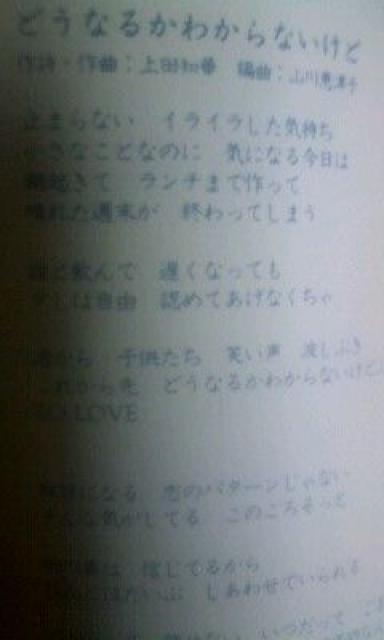 どうなるかわからないけど
作詩・作曲：上田知華 編曲：山川恵津子
止まらない イライラした気持ち
小さなことなのに 気になる今日は
朝起きて ランチまで作って
晴れた週末が 終わってしまう
飲んで 遅くなっても
少しは自由 認めてあげなくちゃ
から 子供たち 笑い声 波しぶき
これから先 どうなるかわからないけど
LOVE
になる 恋のパターンじゃない
そんな気がしてる このごろそっと
は 信じてるから
だいぶ しあわせでいられる
いつだって